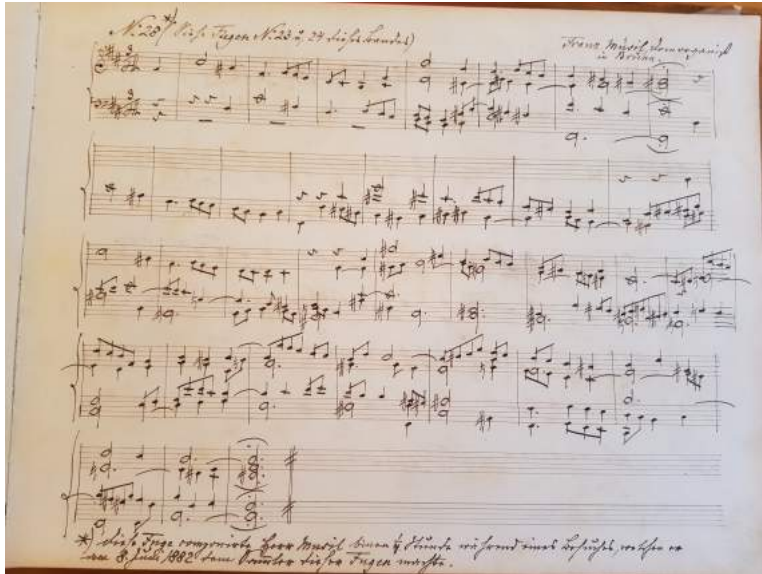 No. 28 *) (Siehe Fugen No. 23 u. 24 dieses Bandes)
Franz Musil, Domorganist
in Brünn.
*) Diese Fuge componirte Herr Musil binnen ¼ Stunde während eines Besuches, welchen er
am 8. Juli 1882 dem Sammler dieser Fugen machte.